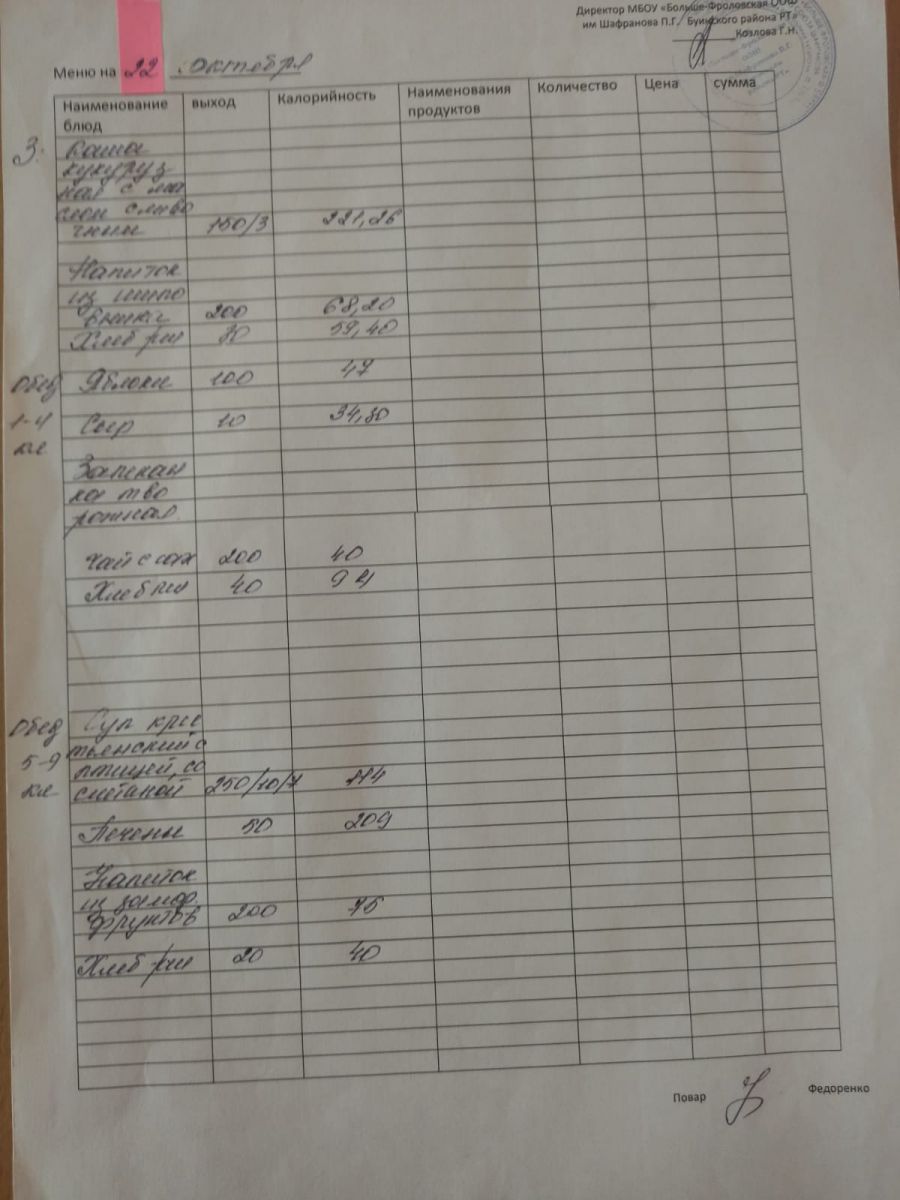 Директор МБОУ «Больше-Фроловская ООШ
им Шафранова П.Г./ Буинского района РТ»
Козлова Г.Н.
Меню на 22 октября
Наименование блюд выход Калорийность Наименования продуктов Количество Цена сумма
З.
Каша
кукуруз
ная с ма
слом сливо
чным 150/3 221,26
Напиток
из шипо
вника 200 68,20
Хлеб рж 30 59,40
Обед Яблоки 100 47
1-4 Сыр 10 34,30
кл
Запекан
ка тво
рожная
Чай с сах 200 40
Хлеб рж 40 94
Обед Суп крес
тьянский с
5-9 птицей, со
кл сметаной 250/10/7 114
Печенье 50 209
Напиток
из замор.
фруктов 200 75
Хлеб рж 20 40
Повар Федоренко